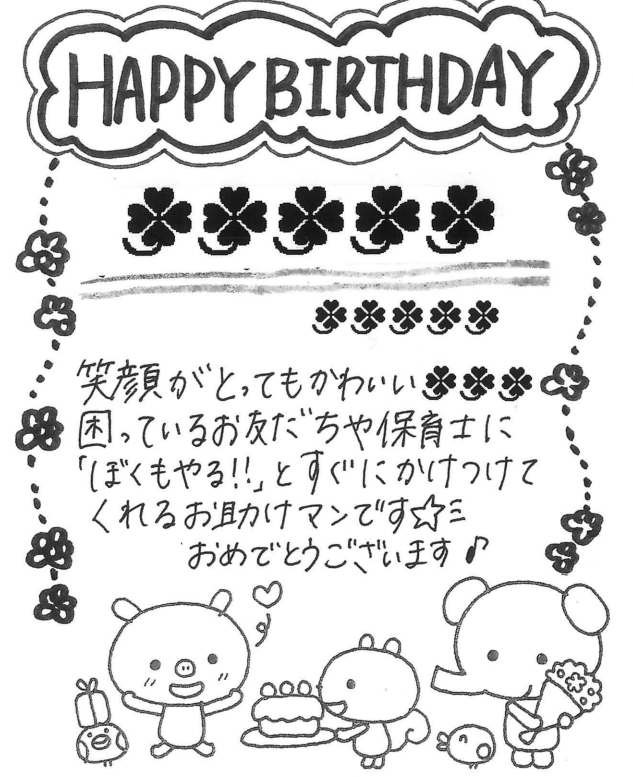 HAPPY BIRTHDAY
笑顔がとってもかわいい
困っているお友だちや保育士に
「ぼくもやる!!」とすぐにかけつけて
くれるお助けマンです☆ミ
おめでとうございます♪